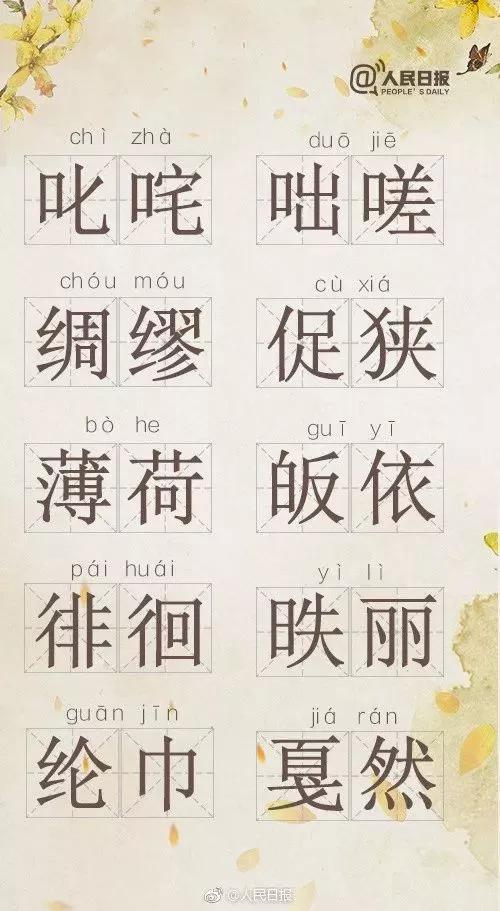 @人民日报
PEOPLE'S DAILY
chì zhà duō jiē
叱咤 咄嗟
chóu móu cù xiá
绸缪 促狭
bò he guī yī
薄荷 皈依
pái huái yì lì
徘徊 昳丽
guān jīn jiá rán
纶巾 戛然
@人民日报